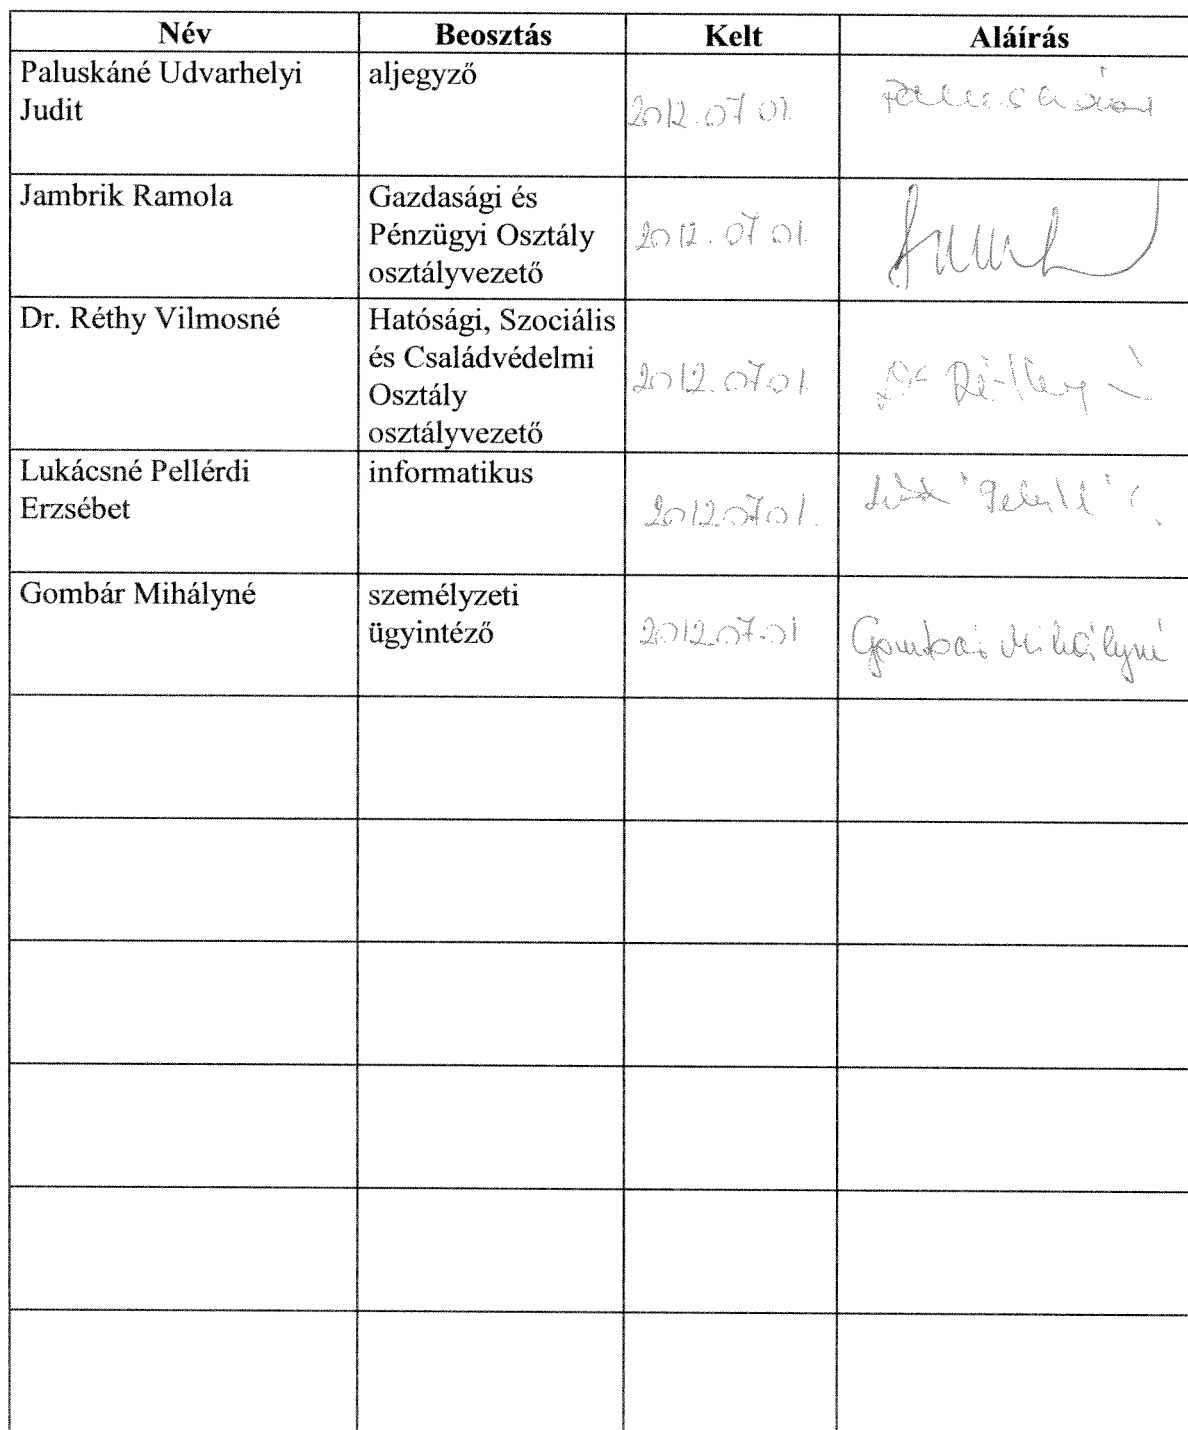 Név Beosztás Kelt Aláírás
Paluskáné Udvarhelyi
Judit
aljegyző
2012.07.01.
Jambrik Ramola
Gazdasági és
Pénzügyi Osztály
osztályvezető
2012.07.01.
Dr. Réthy Vilmosné
Hatósági, Szociális
és Családvédelmi
Osztály
osztályvezető
2012.07.01
Dr Réthy
Lukácsné Pellérdi
Erzsébet
informatikus
2012.07.01.
Gombár Mihályné
személyzeti
ügyintéző
2012.07.01
Gombár Mihályné